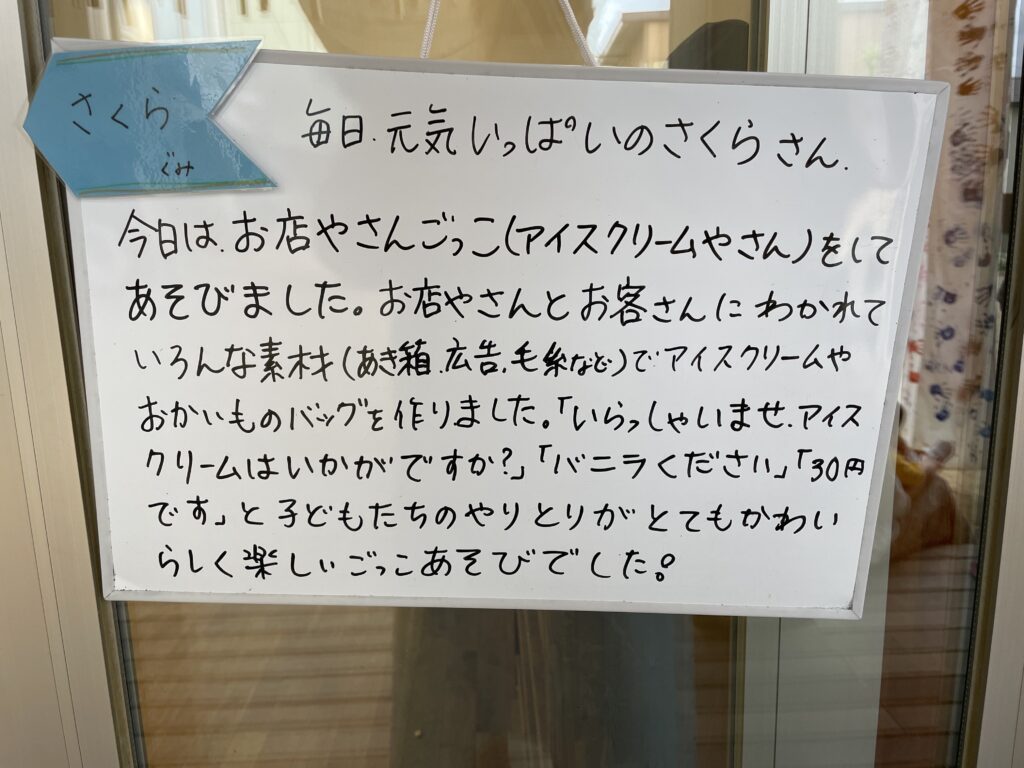 さくら
ぐみ
毎日.元気いっぱいのさくらさん.
今日は.お店やさんごっこ(アイスクリームやさん)をして
あそびました。お店やさんとお客さんにわかれて
いろんな素材(あき箱.広告.毛糸など)でアイスクリームや
おかいものバッグを作りました。「いらっしゃいませ.アイス
クリームはいかがですか?」「バニラください」「30円
です」と子どもたちのやりとりがとてもかわい
らしく楽しいごっこあそびでした。